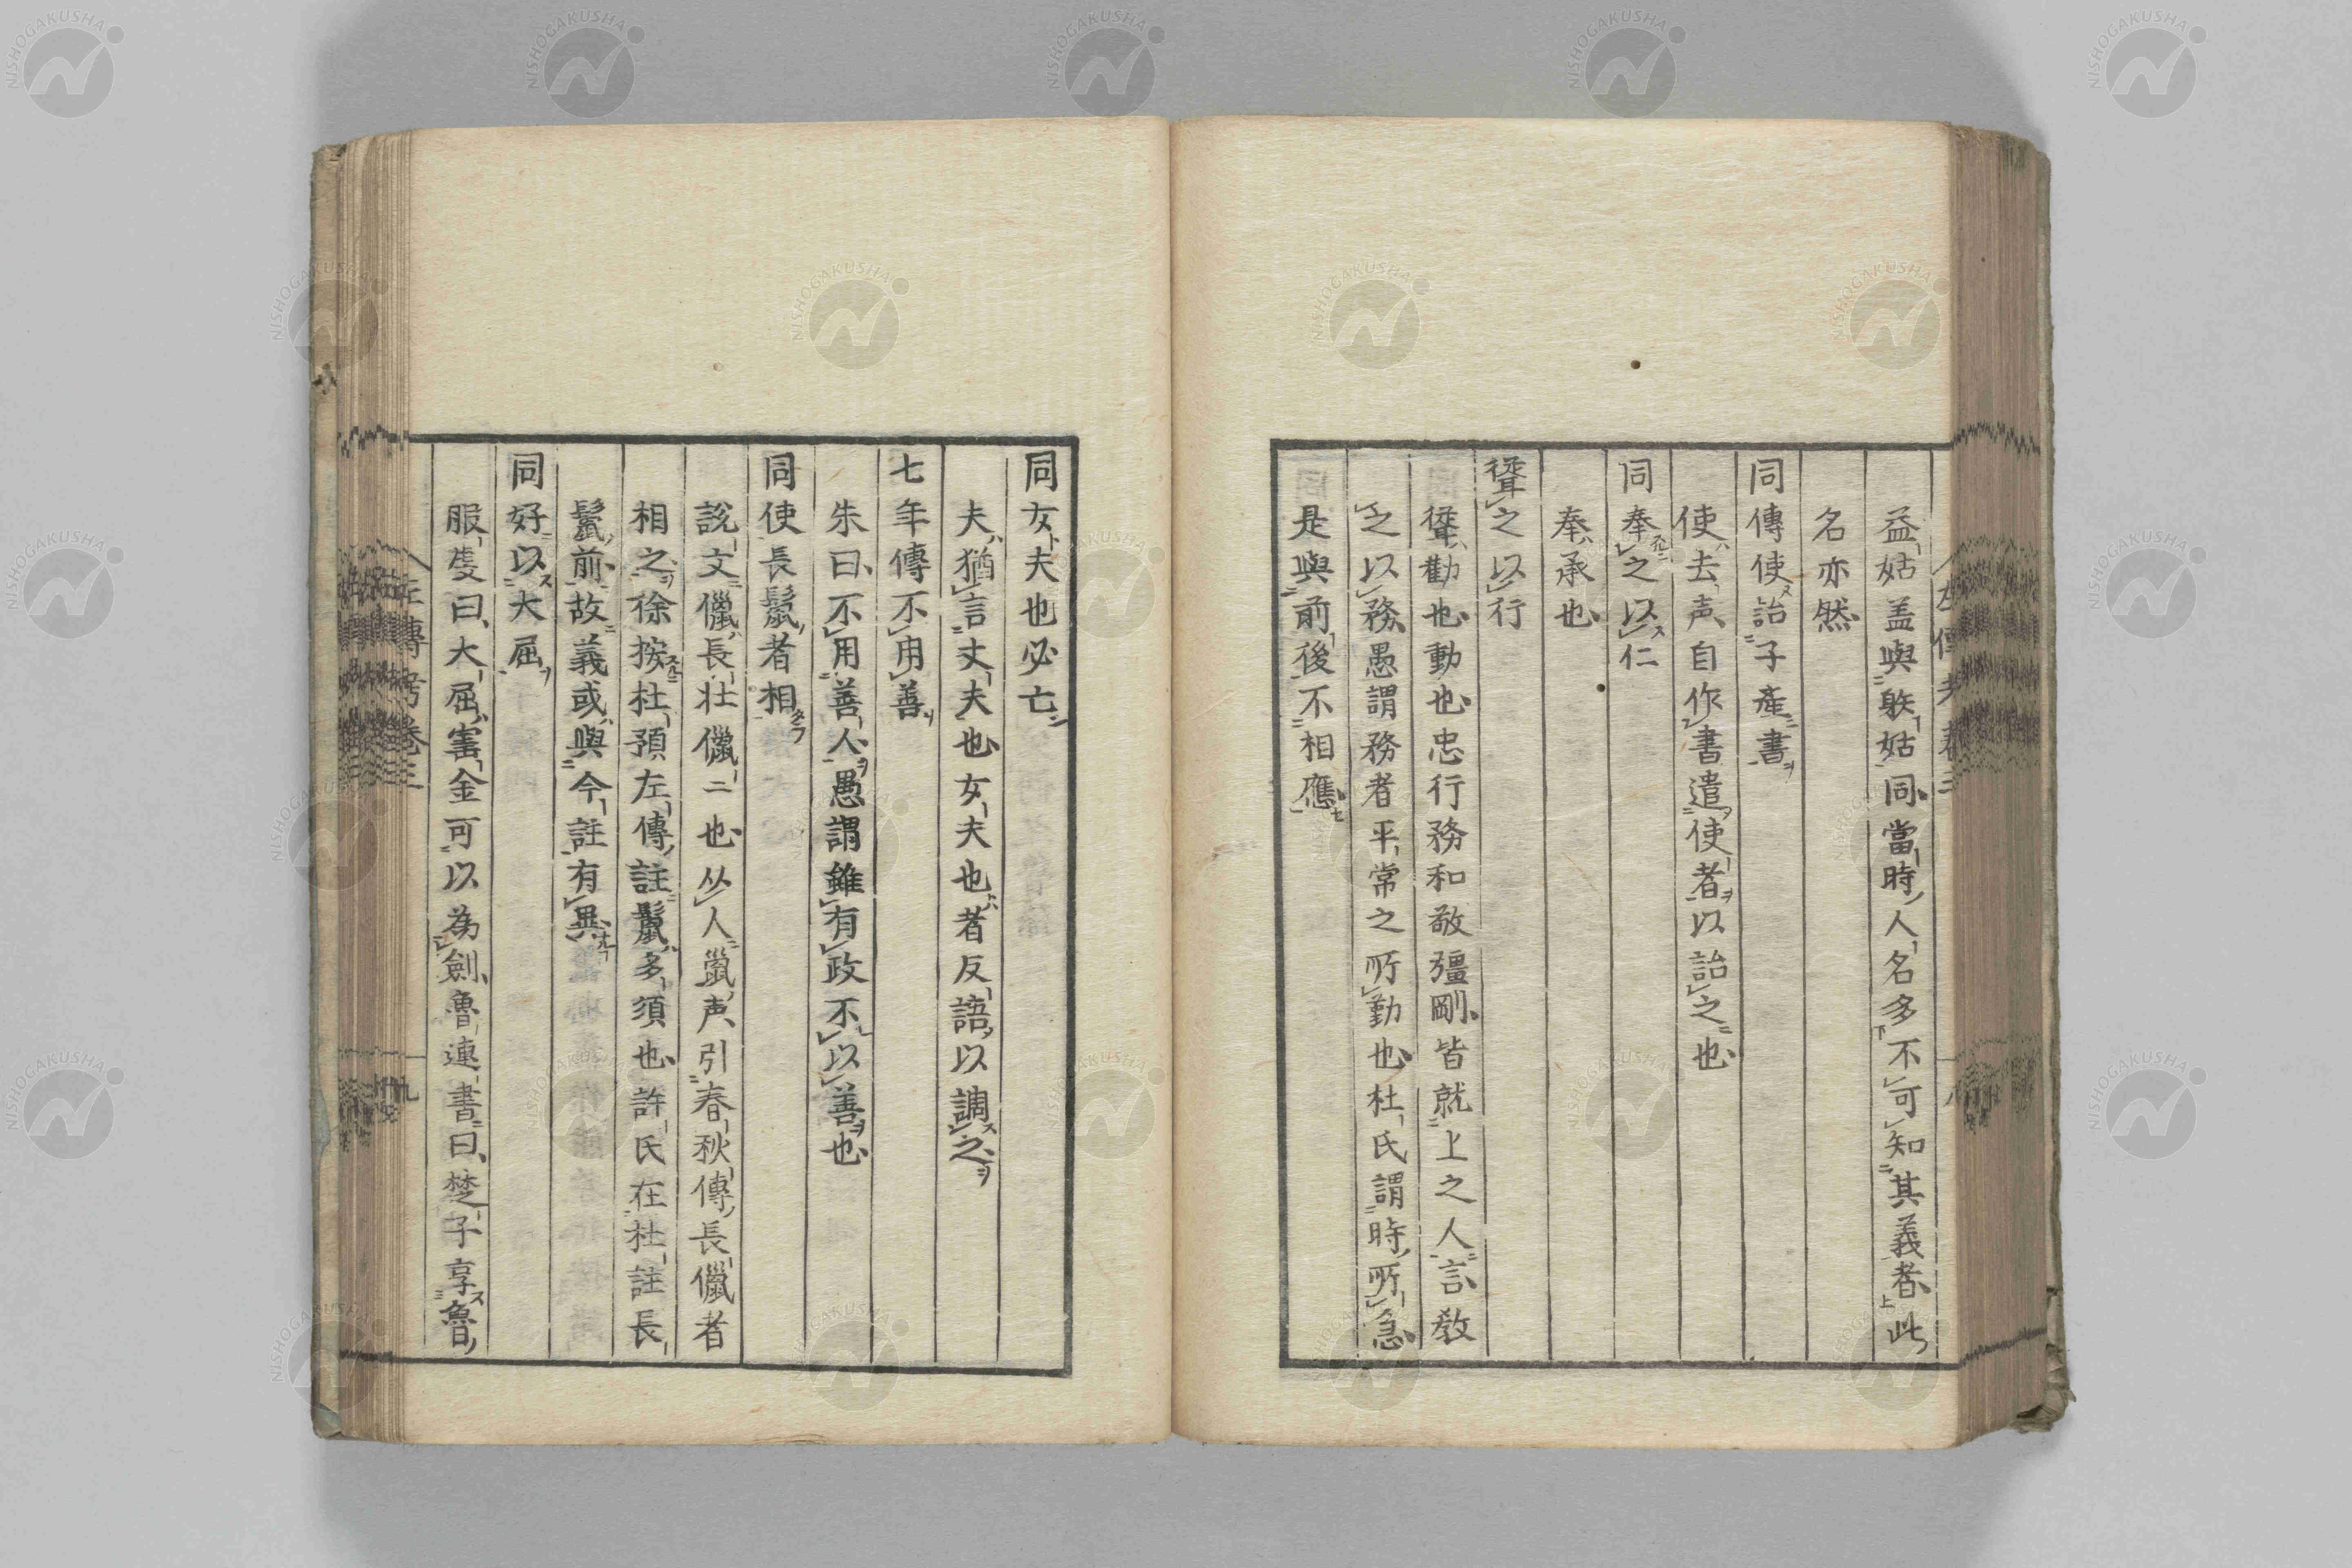 益姑盖與躾姑同當時人名多不可知其義者此
名亦然
同傳使詒子產書
使去声自作書遣使者以詒之也
同奉之以仁
奉承也
聳之以行
聳勸也動也忠行務和敬彊剛皆就上之人言教
之以務愚謂務者平常之所勤也杜氏謂時所急
是與前後不相應
同女夫也必亡
夫猶言丈夫也女夫也者反語以調之
七年傳不用善
朱曰不用善人愚謂雖有政不以善也
同使長鬣者相
說文儠長壯儠二也从人巤声引春秋傳長儠者
相之徐按杜預左傳註鬣多須也許氏在杜註長
鬣前故義或與今註有異
同好以大屈
服虔曰大屈寶金可以為劍魯連書曰楚子享魯
左傳考卷三
九
NISHOGAKUSHA